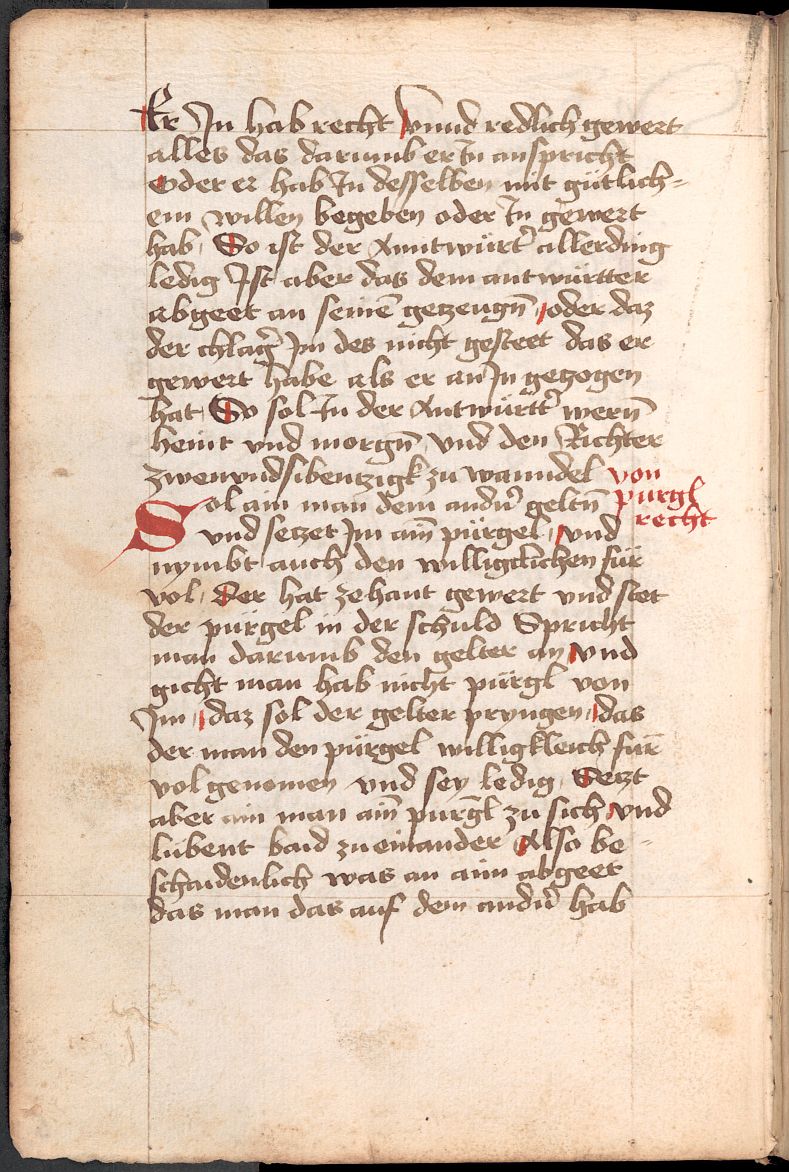 Er In hab recht vnnd redlich gewert
alles das darumb er In anspricht
Oder er hab In desselben mit gütlich-
em willen begeben oder In gewert
hab So ist der Antwürtẽ allerding
ledig Ist aber das dem antwürtter
abgeet an seinẽ getzeugñ oder daz
der chlag̃ Im des nicht gesteet das er
gewert habe als er an In getzogen
hat So sol In der Antwürtt̃ wern̄
heint vnd morgñ vnd den Richter
zwenvndsibentzigk zu wanndel von
purgl
recht
Sol ain man dem andñ geltñ
vnd setzet Im aiñ pürgel vnd
nymbt auch den willigclichen für
vol Der hat zehant gewert vnd stet
der pürgel in der schuld Spricht
man darumb den gelter an vnd
gicht man hab nicht pürgl von
Im daz sol der gelter pryngen das
der man den pürgel willigkleich für
vol genomen vnd sey ledig Setzt
aber ain man aiñ pürgl zu sich vnd
lubent baid zu einander Also be-
schaidenlich was an aim abgeet
das man das auf dem andñ hab